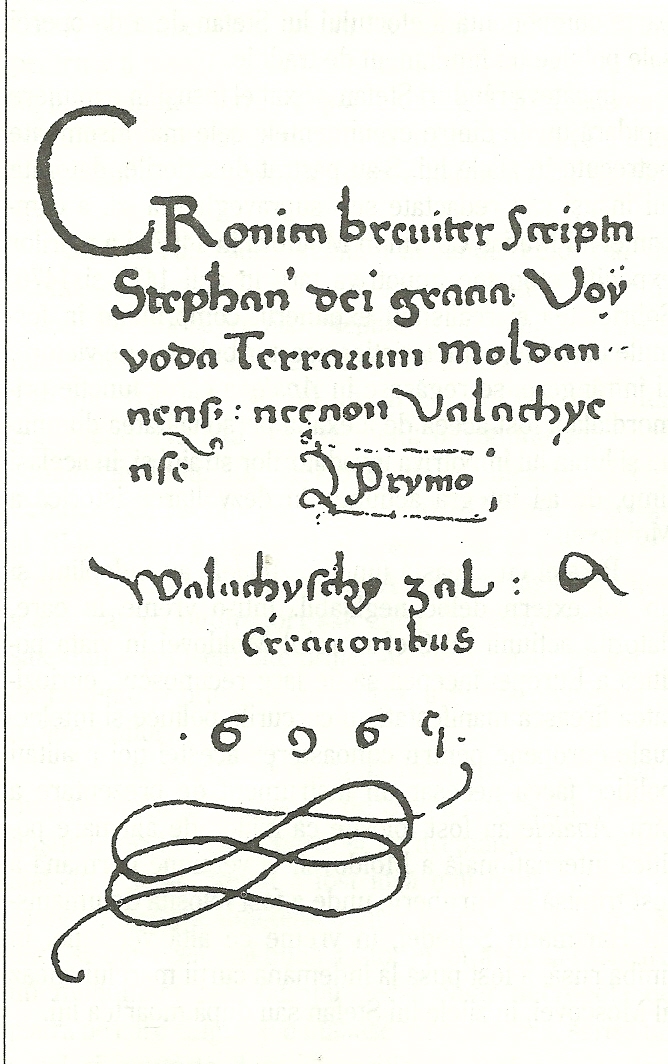 CRonica breuiter Scripta
Stephan' dei gracia Voÿ
voda Terrarum Moldan
nens: necnon Valachye
nsem Prymo
Walachysch zal: A
Creacionibus
· 6 9 6 5 ·